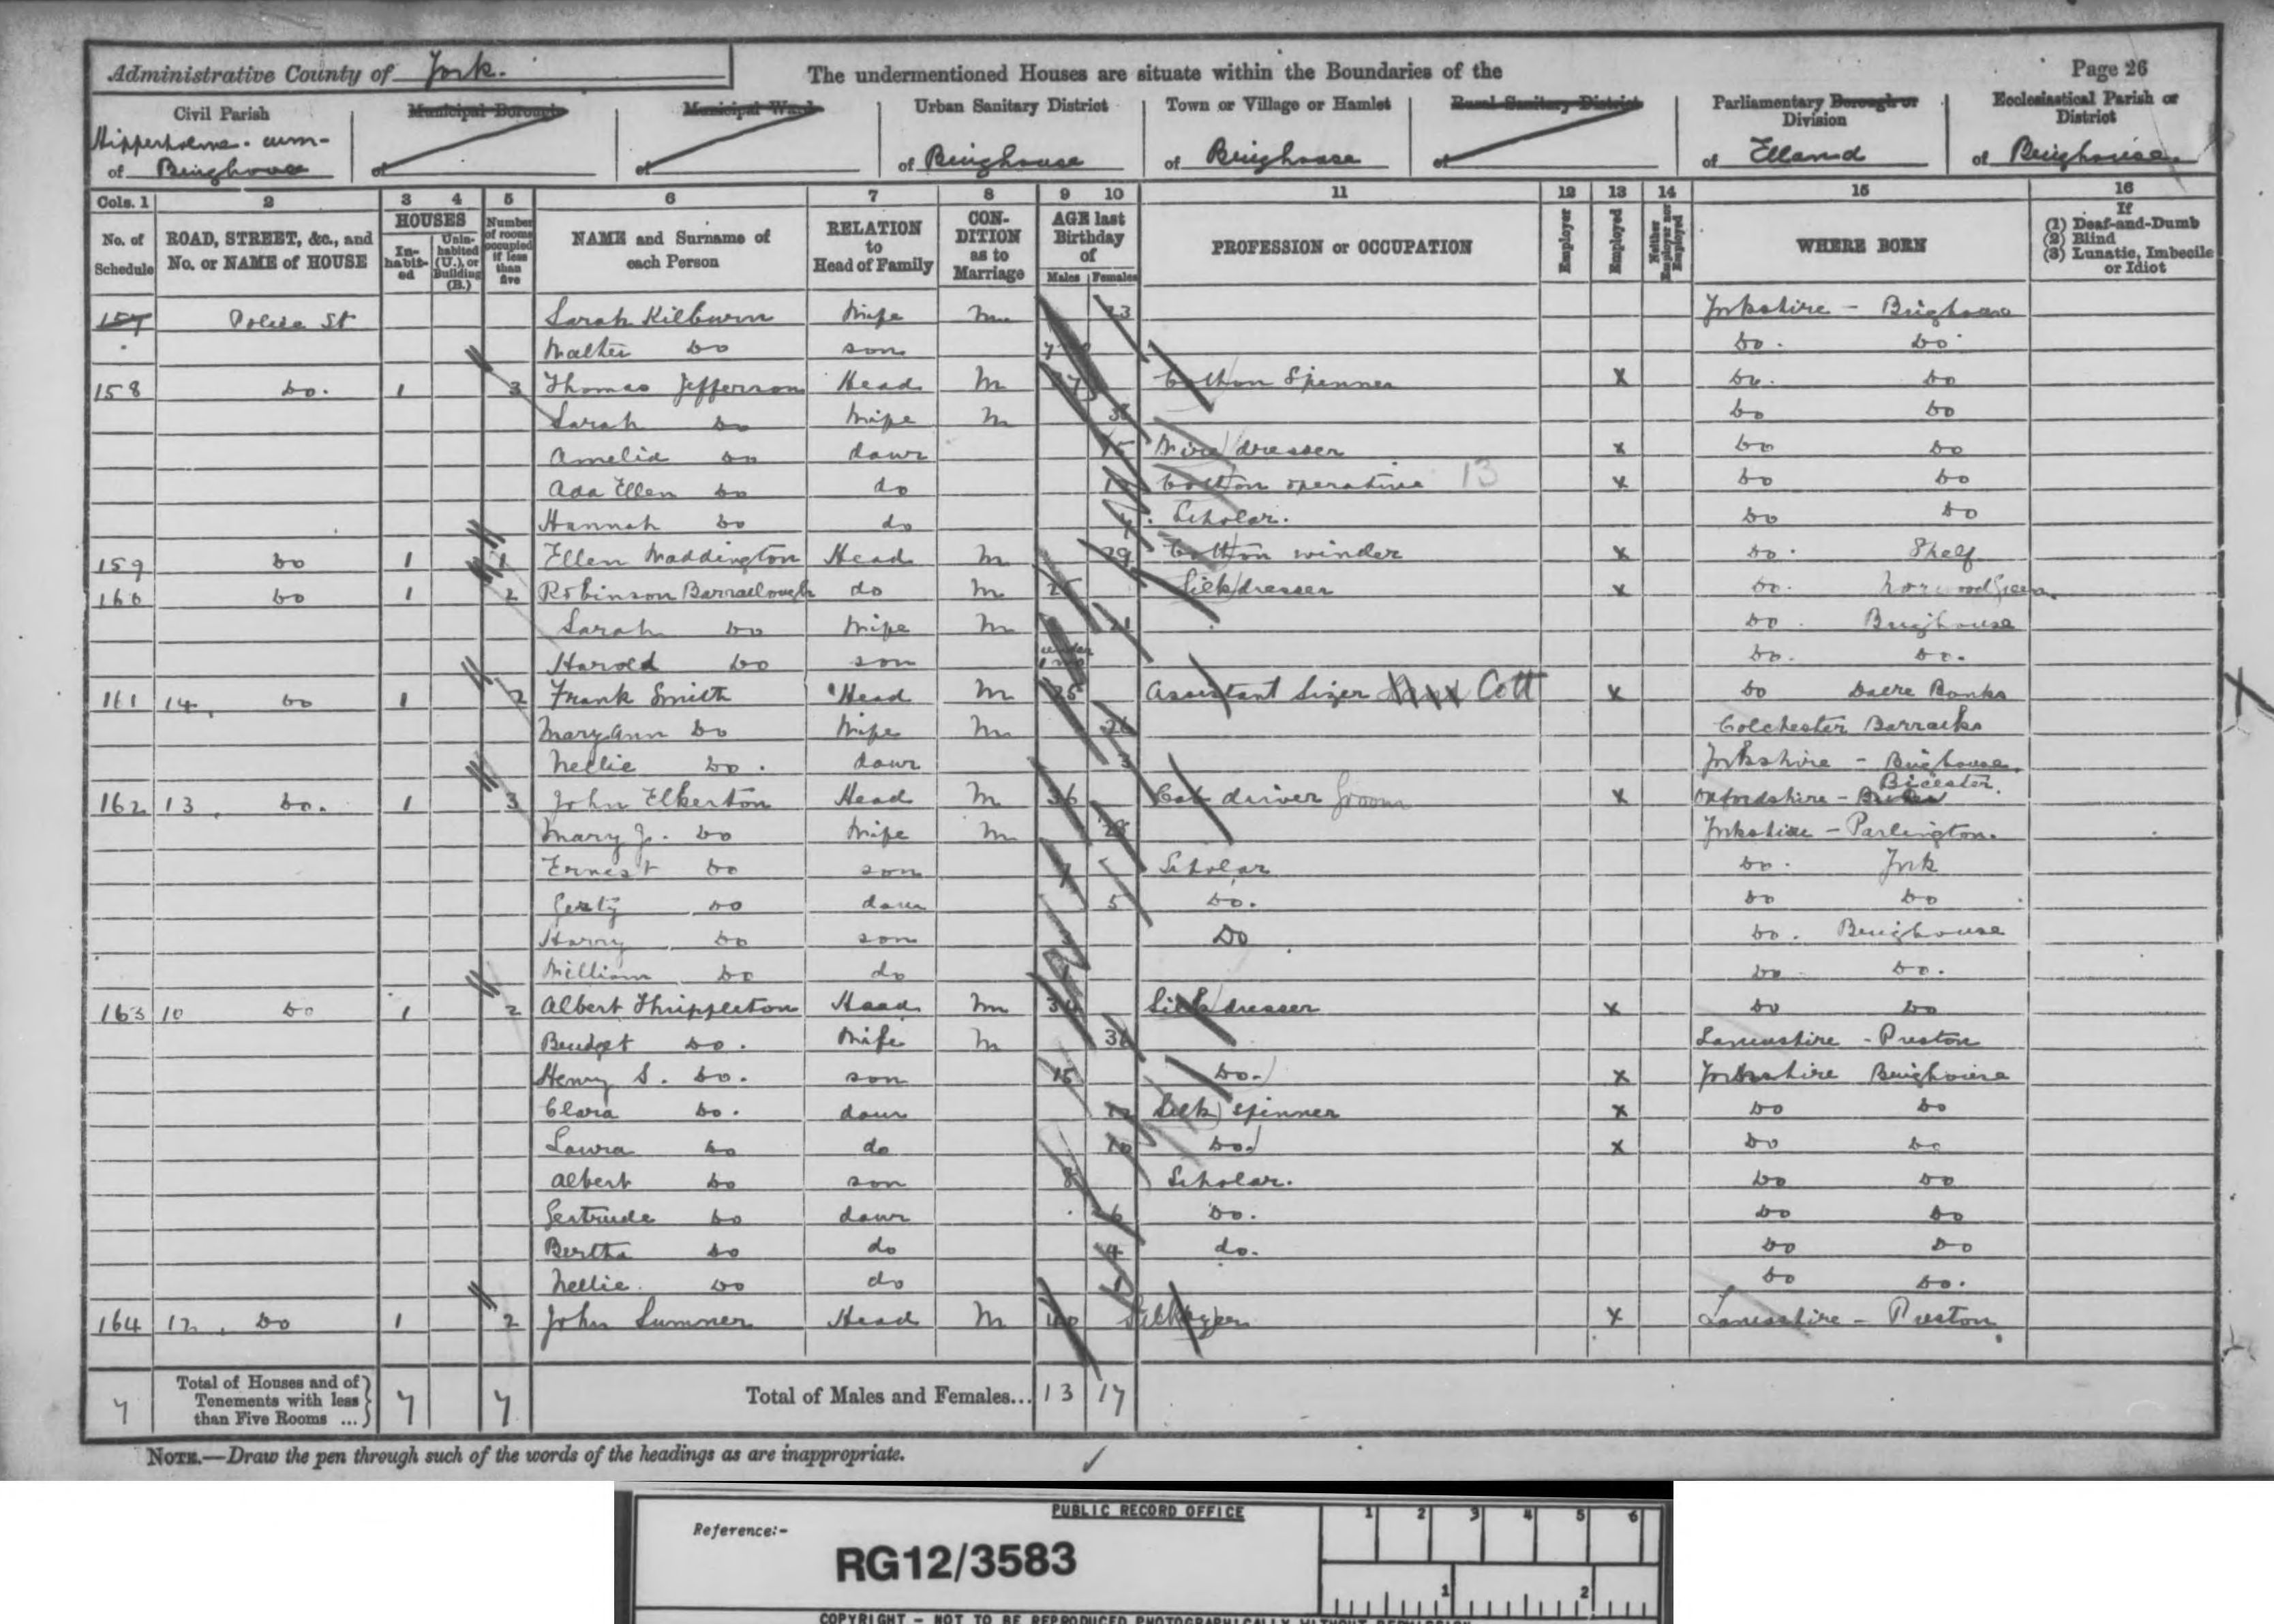 Administrative County of York. The undermentioned Houses are situate within the Boundaries of the Page 26
Civil Parish Municipal Borough Municipal Ward Urban Sanitary District Town or Village or Hamlet Rural Sanitary District Parliamentary Borough or Division Ecclesiastical Parish or District
Hipperholme-cum-
of Brighouse of of of Brighouse of Brighouse of of Elland of Brighouse
Cols. 1 2 3 4 5 6 7 8 9 10 11 12 13 14 15 16
No. of Schedule ROAD, STREET, &c., and No. or NAME of HOUSE HOUSES Inhabited Uninhabited (U.), or Building (B.) Number of rooms occupied if less than five NAME and Surname of each Person RELATION to Head of Family CONDITION as to Marriage AGE last Birthday of Males Females PROFESSION or OCCUPATION Employer Employed Neither Employer nor Employed WHERE BORN If (1) Deaf-and-Dumb (2) Blind (3) Lunatic, Imbecile or Idiot
157 Police St Sarah Kilburn Wife M 23 Yorkshire - Brighouse
Walter Do son Do. Do
158 Do. 1 3 Thomas Jefferson Head M 37 Cotton Spinner X Do. Do
Sarah Do Wife M Do Do
Amelia Do daur 15 Wire dresser X Do Do
Ada Ellen Do do Cotton operative 13 X Do Do
Hannah Do do Scholar. Do Do
159 Do 1 1 Ellen Waddington Head M 29 Cotton winder X Do. Shelf
160 Do 1 2 Robinson Barraclough do M Silk dresser X Do. Norwood Green
Sarah Do Wife M 21 Do. Brighouse
Harold Do son under 1 mo Do. Do.
161 14, Do 1 2 Frank Smith Head M 25 Assistant Sizer Cott X Do Dacre Banks
Mary Ann Do Wife M 26 Colchester Barracks
Nellie Do. daur 3 Yorkshire - Brighouse
162 13, Do. 1 3 John Elkerton Head M 36 Cab driver Groom X Oxfordshire - Bicester.
Mary J. Do Wife M Yorkshire - Parlington.
Ernest Do son 7 Scholar Do. York
Gerty Do daur 5 Do. Do Do
Harry Do son Do Do. Brighouse
William Do do Do Do.
163 10 Do 1 2 Albert Thrippleton Head M Silk dresser X Do Do
Bridget Do. Wife M Lancashire - Preston
Henry S. Do. son 15 Do. X Yorkshire Brighouse
Clara Do. daur Silk spinner X Do Do
Laura Do do 10 Do. X Do Do
Albert Do son 8 Scholar. Do Do
Gertrude Do daur 6 Do. Do Do
Bertha Do do 4 do. Do Do
Nellie. Do do 1 Do Do.
164 12, Do 1 2 John Sumner Head M 40 X Lancashire - Preston
7 Total of Houses and of Tenements with less than Five Rooms ... 7 7 Total of Males and Females... 13 17
NOTE.—Draw the pen through such of the words of the headings as are inappropriate.
PUBLIC RECORD OFFICE 1 2 3 4 5 6
Reference:-
RG12/3583
1 2
COPYRIGHT - NOT TO BE REPRODUCED PHOTOGRAPHICALLY WITHOUT PERMISSION